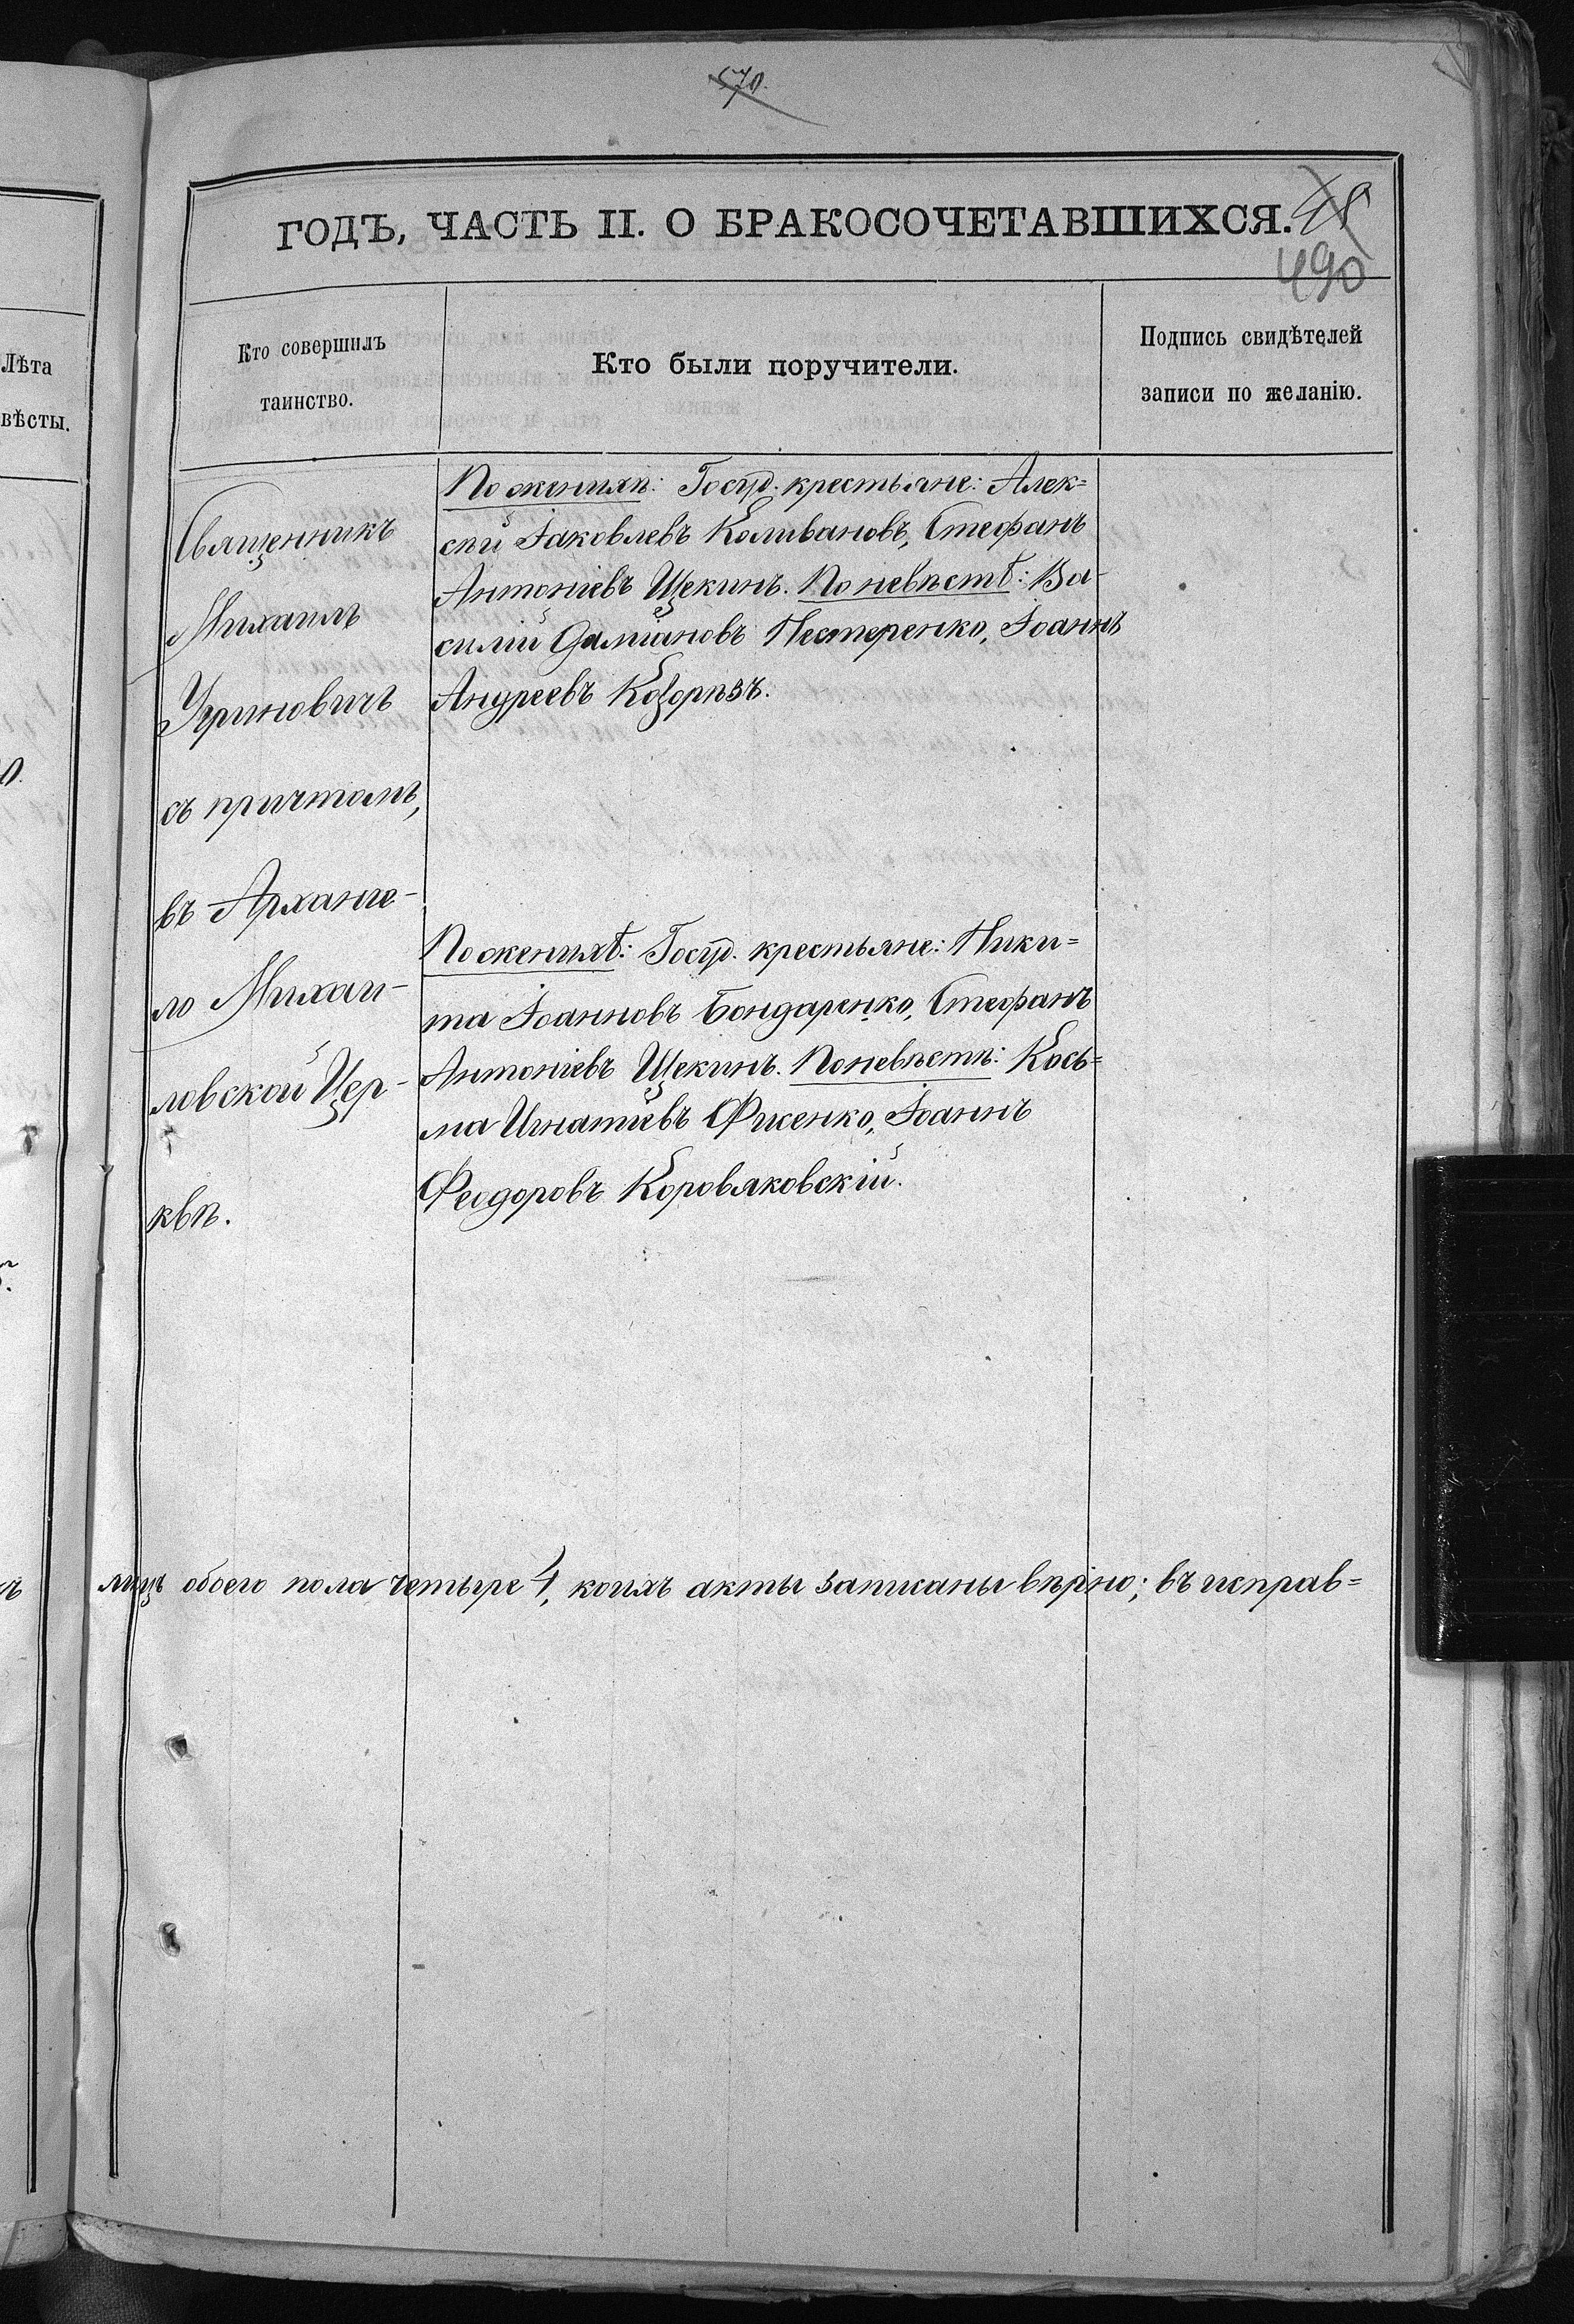 570.
ГОДЪ, ЧАСТЬ II. О БРАКОСОЧЕТАВШИХСЯ.
490
Лѣта
вѣсты.
Кто совершилъ
таинство.
Кто были поручители.
Подпись свидѣтелей
записи по желанію.
Священникъ
Михаилъ
Угриновичъ
съ причтомъ,
въ Арханге-
ло Михаи-
ловской Цер-
квѣ.
По женихѣ: Госуд. крестьяне: Алек=
сѣй Іаковлевъ Коливановъ, Стефанъ
Антоніевъ Щекинъ. По невѣстѣ: Ва-
силій Даміановъ Нестеренко, Іоаннъ
Андреевъ Козорѣзъ.
По женихѣ: Госуд. крестьяне: Ники=
та Іоанновъ Бондаренко, Стефанъ
Антоніевъ Щекинъ. По невѣстѣ: Кось=
ма Игнатіевъ Фисенко, Іоаннъ
Феодоровъ Коровяковскій.
лицъ обоего пола четыре 4, коихъ акты записаны вѣрно; въ исправ=